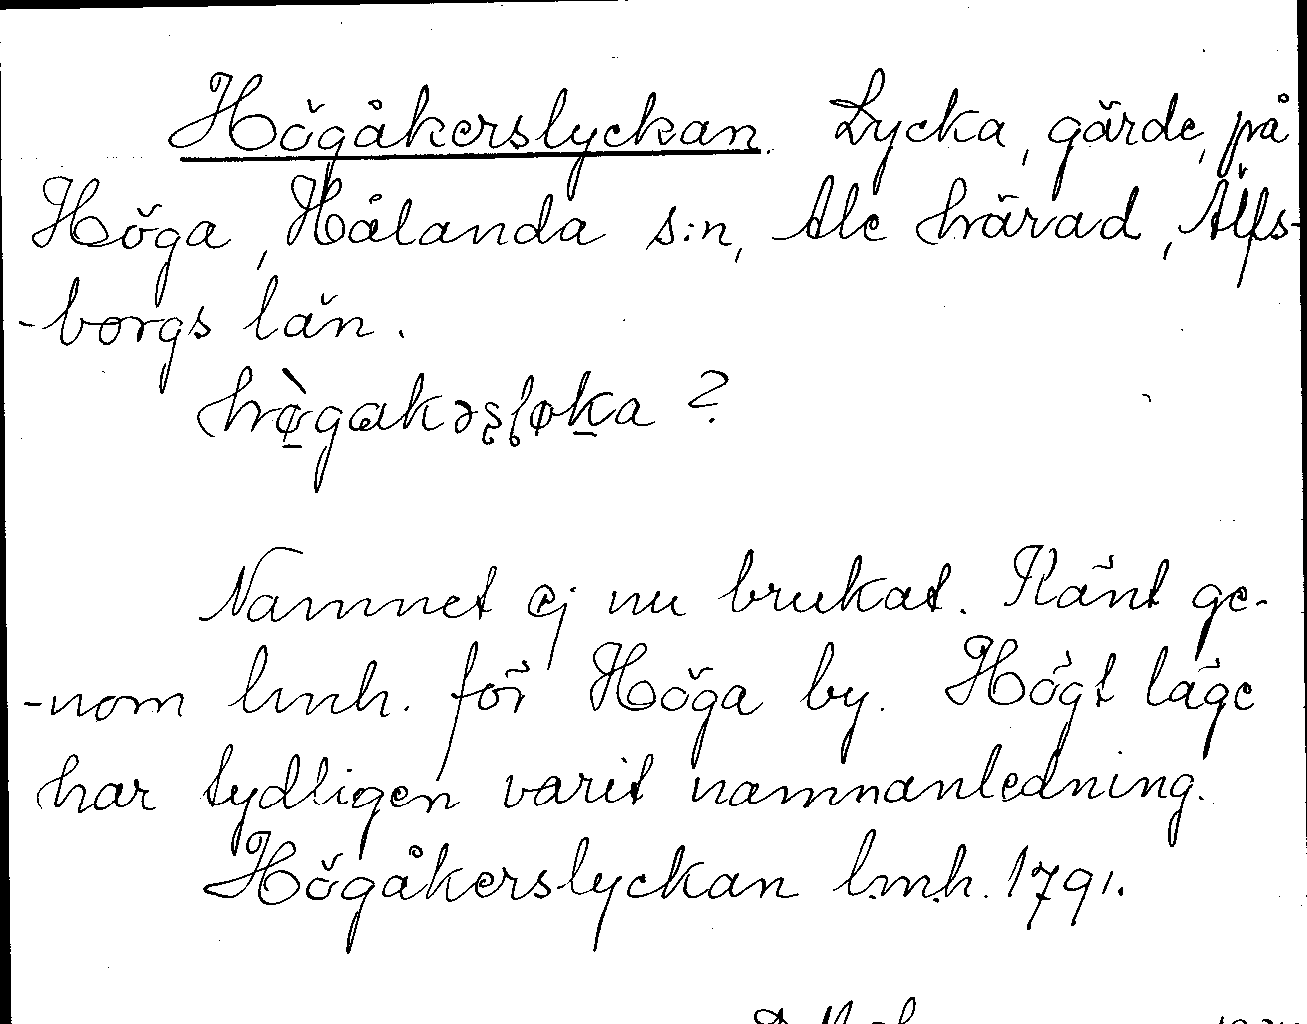 Högåkerslyckan. Lycka, gärde, på
Höga, Hålanda s:n, Ale härad, Älfs-
-borgs län.
hø̀gakəsļøka ?
Namnet ej nu brukat. Känt ge-
-nom lmh. för Höga by. Högt läge
har tydligen varit namnanledning.
Högåkerslyckan l.m.h. 1791.